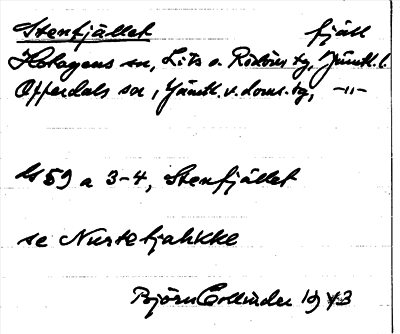 Stenfjället fjäll
Hotagens sn, Lits o. Rödöns tg, Jämtl. l.
Offerdals sn, Jämtl. v. doms. tg, -"-
G 59 a 3-4, Stenfjället
se Nurretjahkke
Björn Collinder 1943